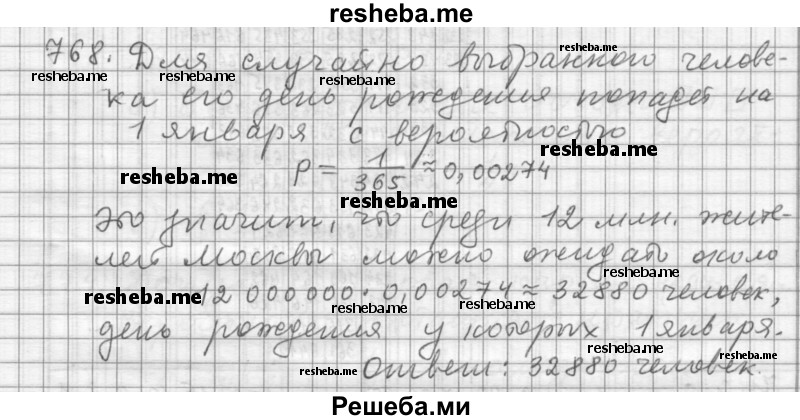 resheba.me
768. Для случайно выбранного челове-
resheba.me resheba.me resheba.me resheba.me
ка его день рождения попадет на
1 января с вероятностью
resheba.me
P = 1/365 ≈ 0,00274
resheba.me resheba.me
Это значит, что среди 12 млн. жите-
лей Москвы можно ожидать около
resheba.me
12 000 000 · 0,00274 ≈ 32880 человек,
resheba.me resheba.me resheba.me
день рождения у которых 1 января.
resheba.me resheba.me
Ответ: 32880 человек.
resheba.me
Решеба.ми